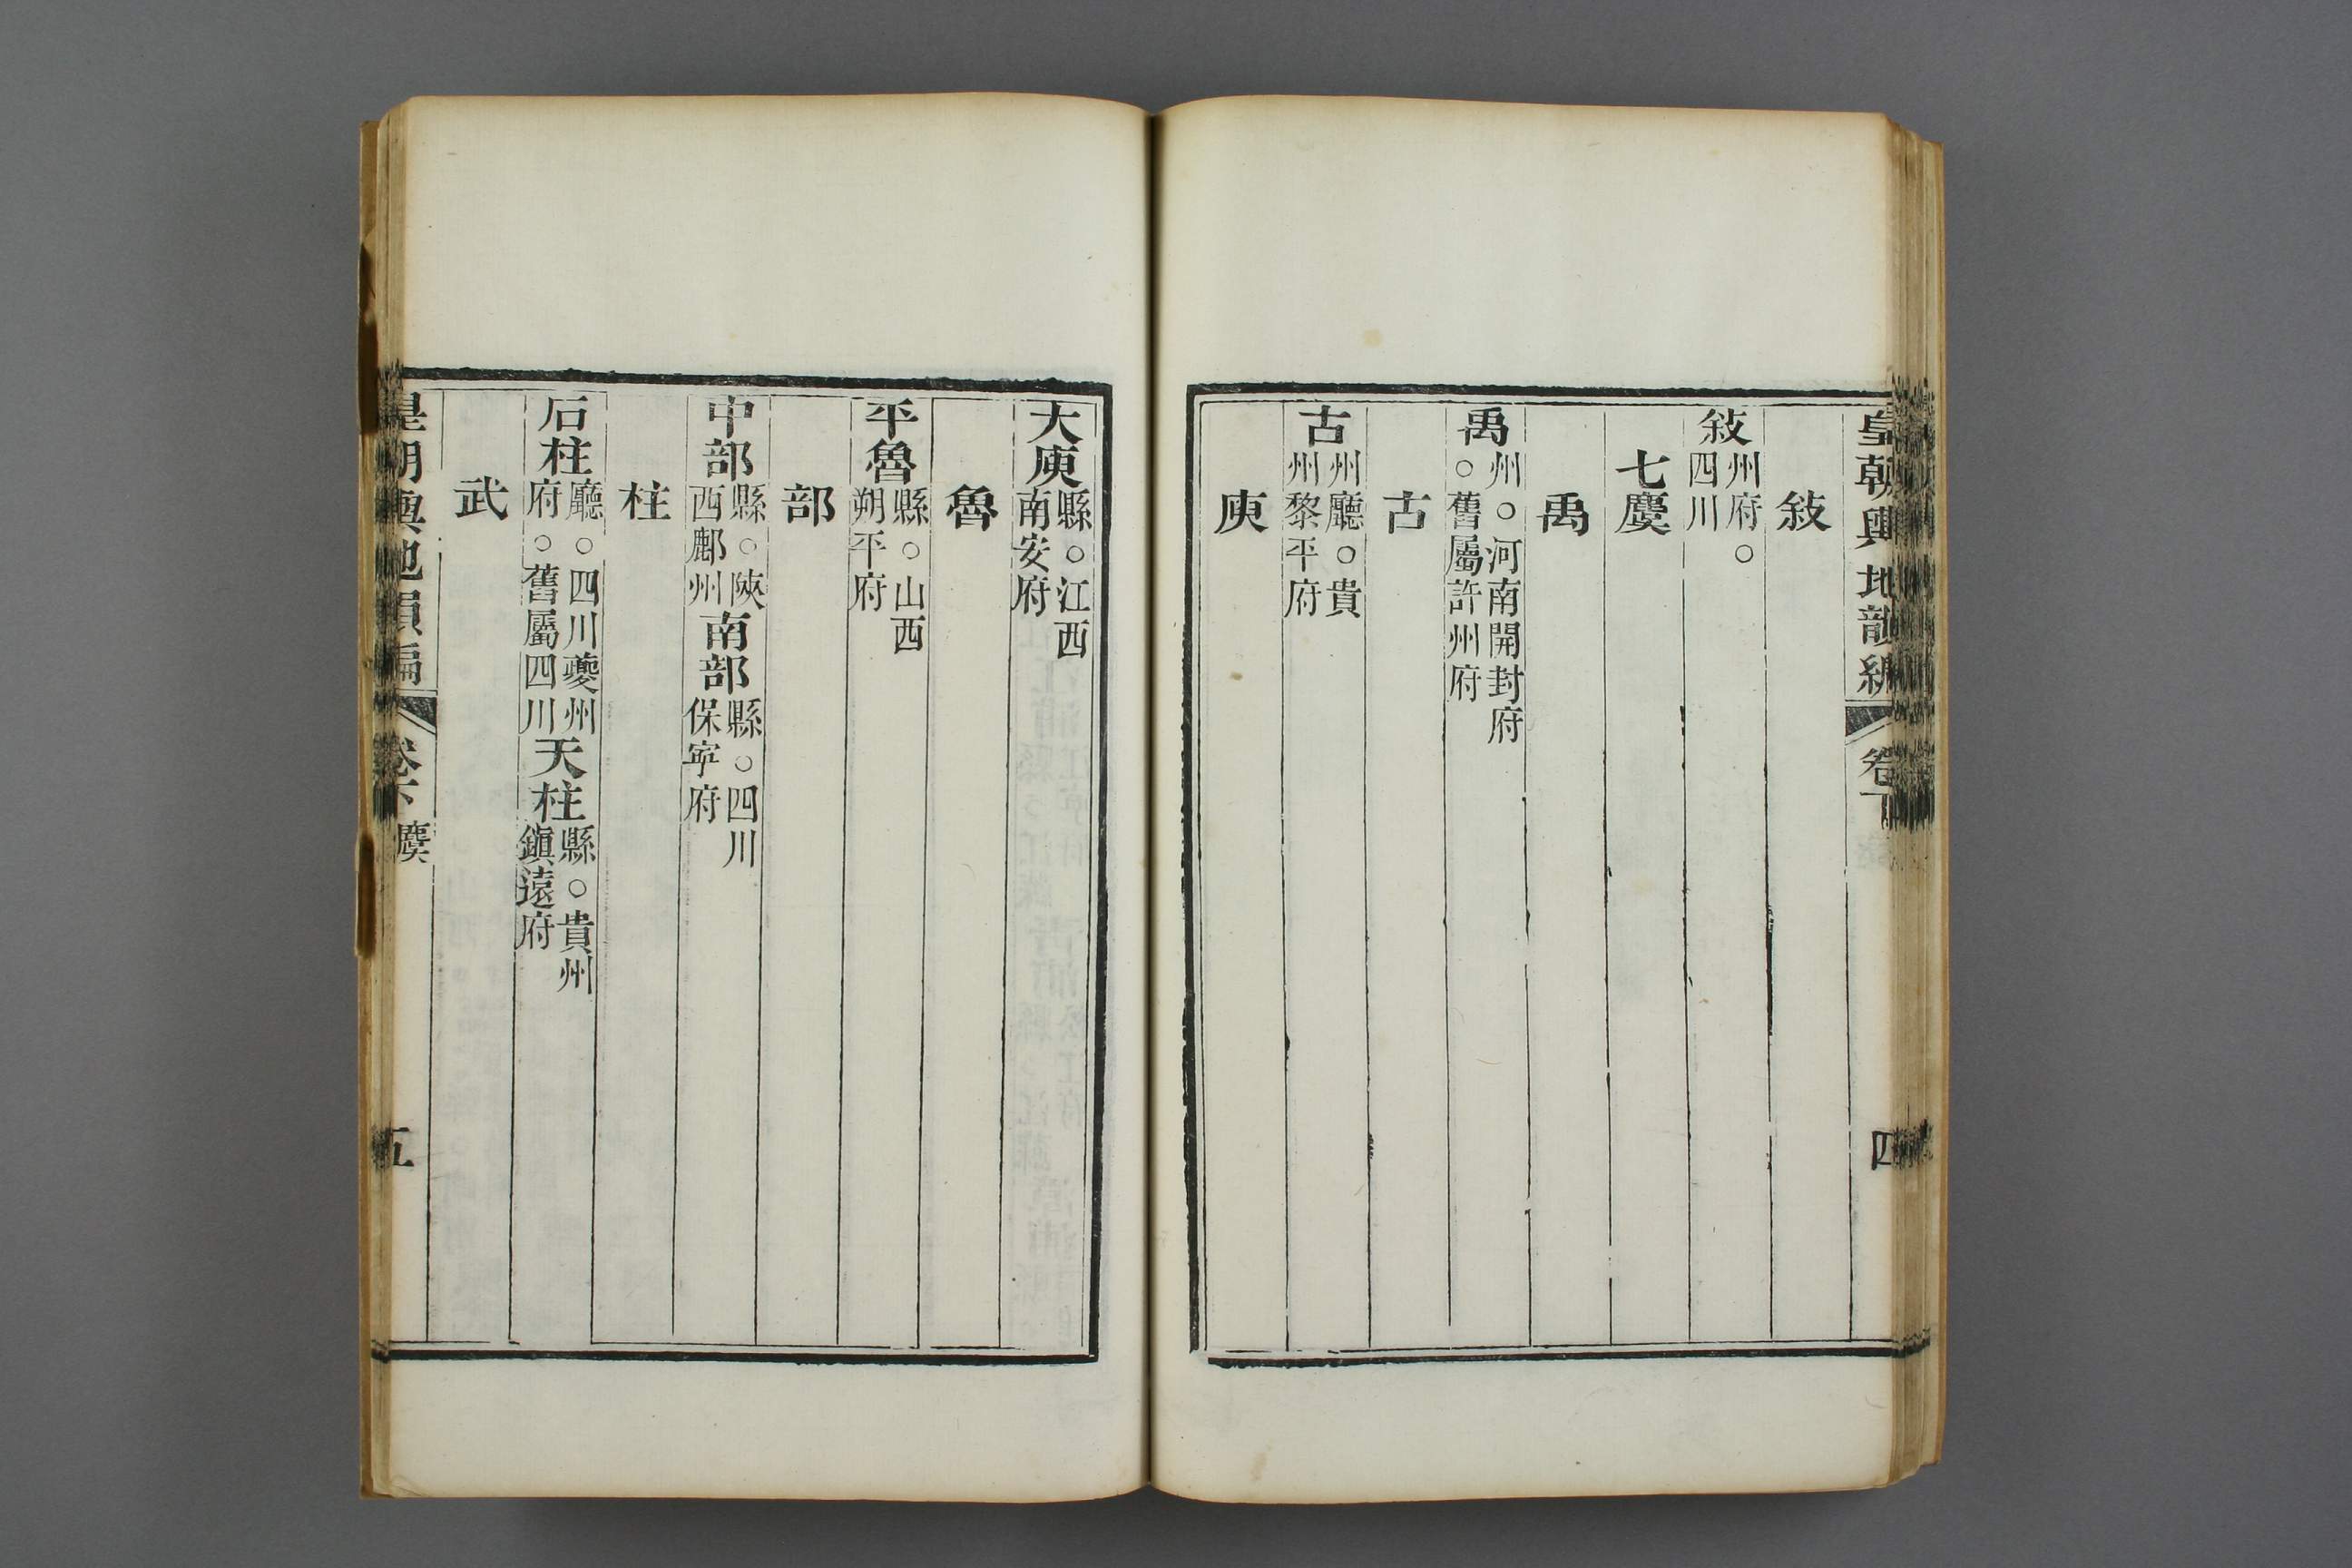 皇朝輿地韻編 卷下 四
敍
敍州府○四川
七麌
禹
禹州○河南開封府○舊屬許州府
古
古州廳○貴州黎平府
庾
大庾縣○江西南安府
魯
平魯縣○山西朔平府
部
中部縣○陝西鄜州 南部縣○四川保寧府
柱
石柱廳○四川夔州府○舊屬四川 天柱縣○貴州鎮遠府
武
皇朝輿地韻編 卷下 麌 五